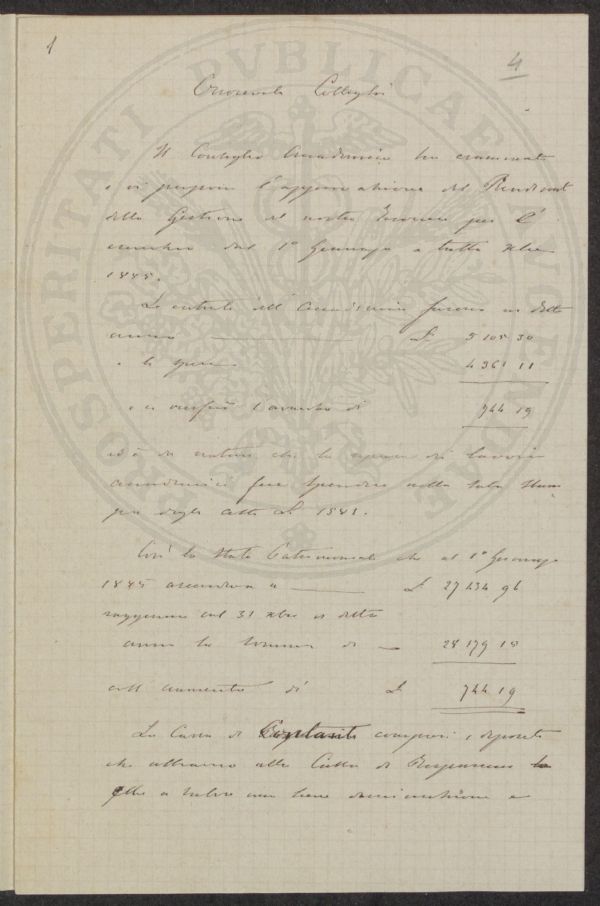 1
4
Onorevoli Colleghi
Il Consiglio Accademico ha esaminato
e vi propone l'approvazione del Rendiconto
della Gestione del nostro per l'
dal 1° Gennajo a tutto Xbre
1885.
Le entrate dell'Accademia furono in detto
anno £ 5 105 30
e le spese 4 361 11
e si verificò l'avanzo di 744 19
ed è da notare che la dei lavori
accademici fece spendere nella sola Stam
pa degli atti £ 1581.
Così lo Stato Patrimoniale che al 1° Gennajo
1885 ascendeva a £ 27 434 96
raggiunse col 31 Xbre di detto
anno la somma di 28 179 15
coll'aumento di £ 744 19
La Cassa di Contanti compresi i depositi
che abbiamo alla Cassa di Risparmio
a lieve diminuzione e
PVBLICAE
PROSPERITATI